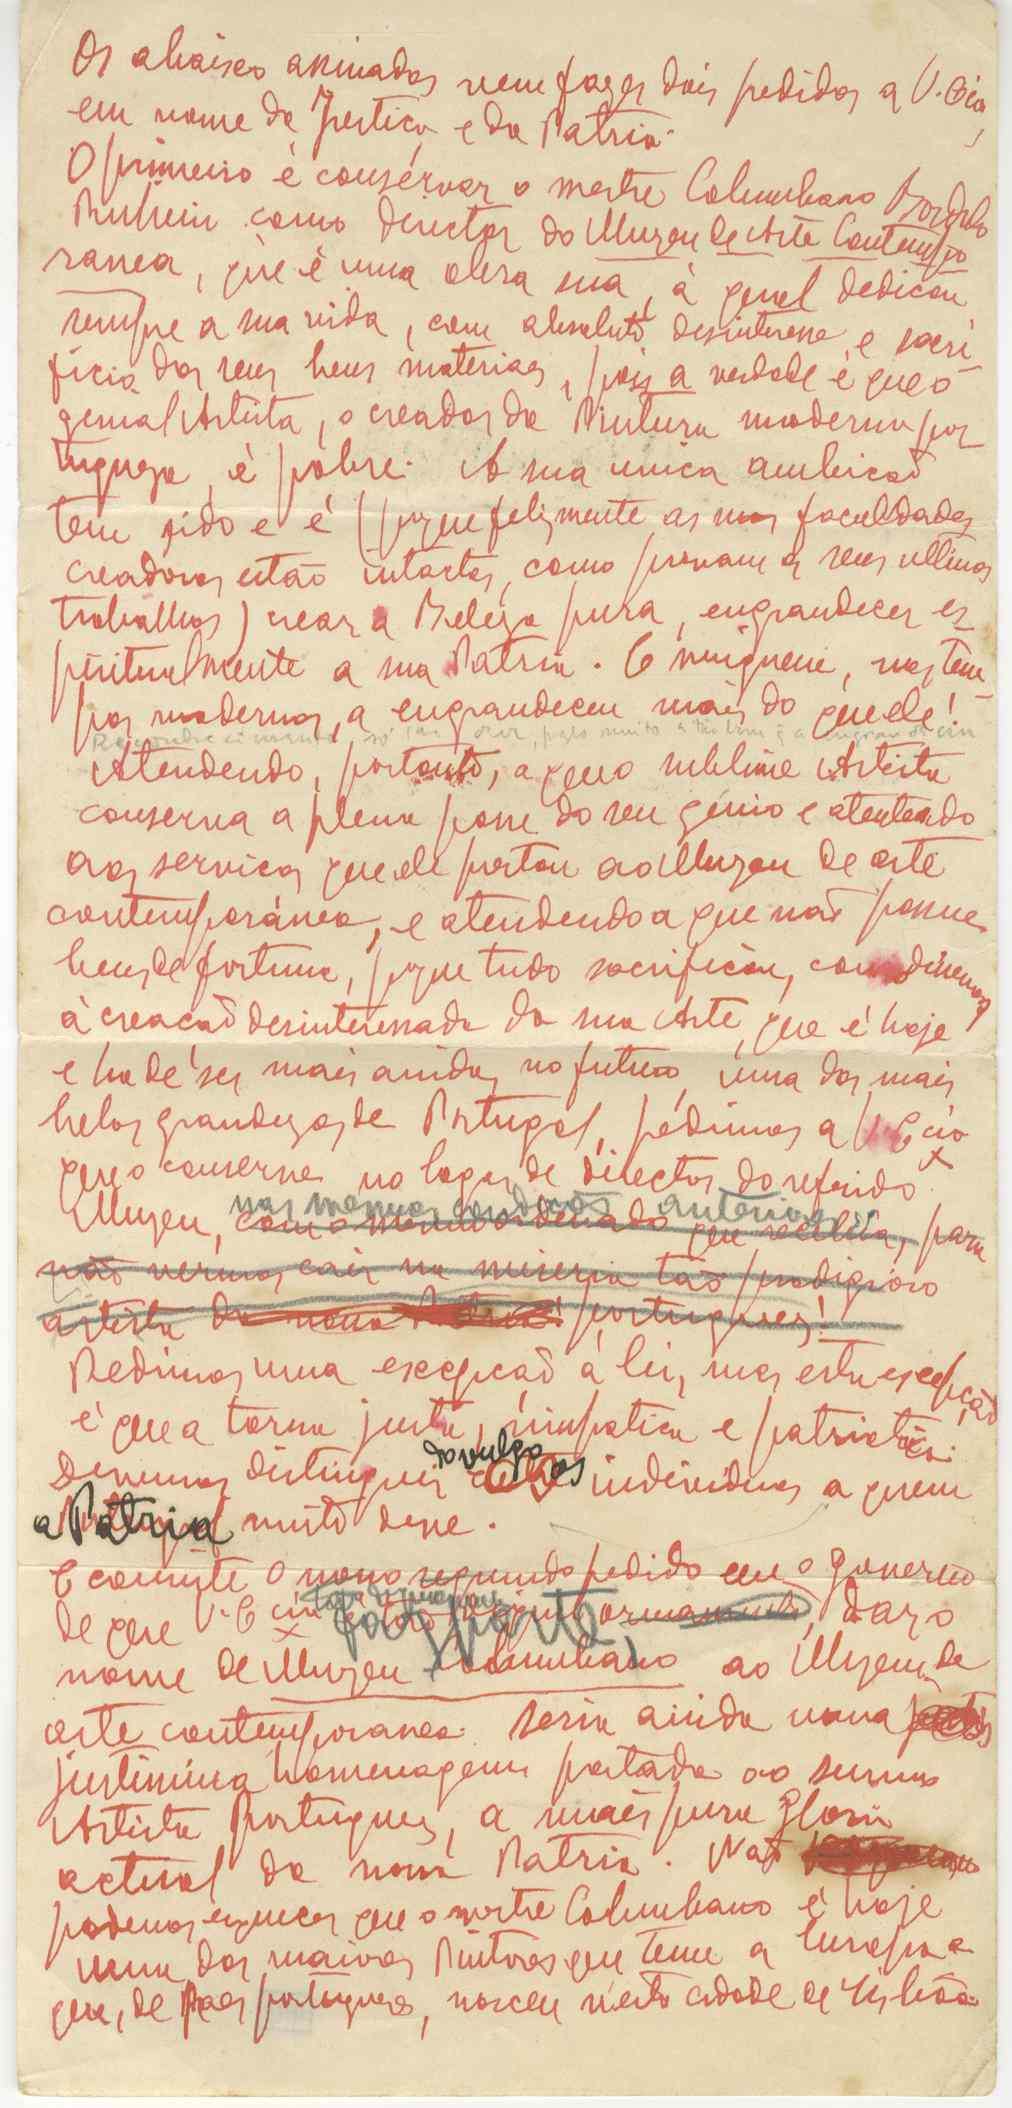 Os abaixo assinados vem fazer dois pedidos a V. Ex.cia,
em nome da Justiça e da Patria.
O primeiro é conservar o mestre Columbano Bordalo
Pinheiro como director do Muzeu de Arte Contempo
ranea, que é uma obra sua, á qual dedicou
sempre a sua vida, com absoluto desinteresse e sacri-
ficio dos seus bens materiaes, pois a verdade é que o
genial Artista, o creador da Pintura moderna por
tugueza, é pobre. A sua unica ambição
tem sido e é (porque felizmente as suas faculdades
creadoras estão intactas, como provam os seus ultimos
trabalhos) crear a Beleza pura, engrandecer es
piritualmente a sua Patria. E ninguem, nos tem-
pos modernos, a engrandeceu mais do que ele!
Atendendo, portanto, a que o sublime Artista
conserva a plena posse do seu génio e atentando
aos serviços que ele prestou ao Muzeu de arte
contemporánea, e atendendo a que não possue
bens de fortuna, porque tudo sacrificou, como dissemos
á creação desinteressada da sua Arte, que é hoje
e ha de ser mais ainda, no futuro, uma das mais
belas grandezas de Portugal, pédimos a V. Ex.cia
que o conserve no logar de director do referido
nas mesmas condições anteriores
Muzeu, com o mesmo ordenado que recebia, para
não vermos cair na miseria tão prodigioso
artista da nossa Patria! portuguezes!
Pedimos uma excepção á lei, mas esta excepção
é que a torna justa, simpatica e patriotica.
do vulgo
Devemos distinguir os individuos a quem
a Pátria muito deve.
E consiste o nosso segundo pedido em o governo
de que V. Ex.cia faz parte, dar o
nome de Muzeu Columbano ao Muzeu de
arte contemporanea. Seria ainda uma
justissima homenagem prestada ao sumo
Artista Portuguez, a mais pura gloria
actual da nossa Patria. Não
podemos esquecer que o mestre Columbano é hoje
um dos maiores Pintores que tem a Europa e
que, de Paes portuguezes, nasceu n'esta cidade de Lisbôa